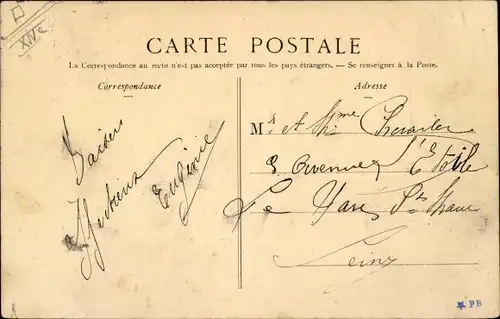 XIVe
CARTE POSTALE
La Correspondance au recto n'est pas acceptée par tous les pays étrangers. — Se renseigner à la Poste.
Correspondance
Adresse
Baisers
affectueux
Eugénie
Mr et Mme Chevalier
8 Avenue de l'Etoile
Le Parc St Maur
Seine
PB